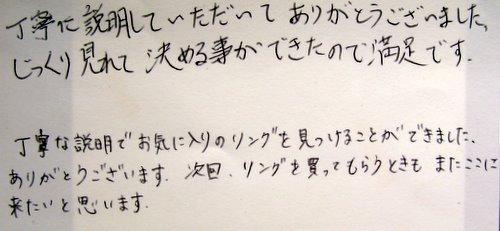 丁寧に説明していただいてありがとうございました。
じっくり見れて決める事ができたので満足です.
丁寧な説明でお気に入りのリングを見つけることができました、
ありがとうございます. 次回、リングを買ってもらうときも またここに
来たいと思います.